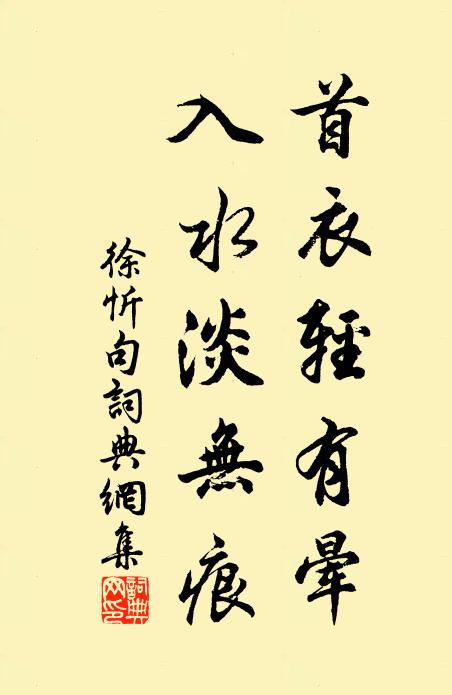 首衣輕有暈
入水淡無痕
徐忻句詞典網集
詞典網印